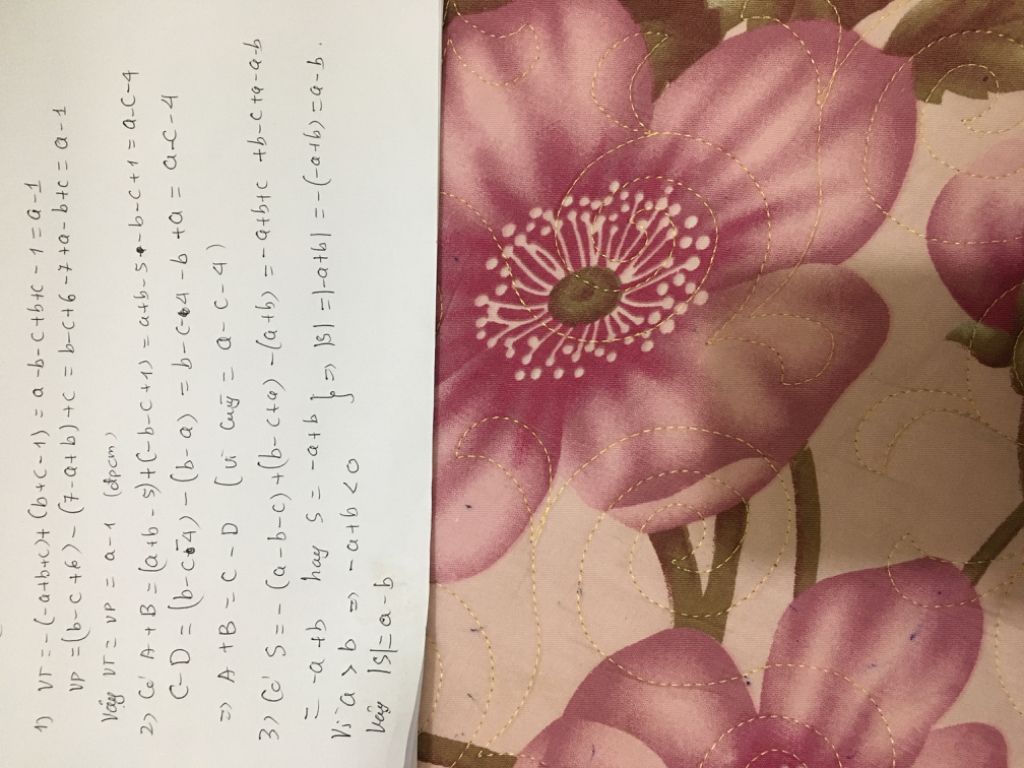 1) VT = -(-a+b+c) + (b+c-1) = a-b-c+b+c-1 = a-1
VP = (b-c+6) - (7-a+b) + c = b-c+6-7+a-b+c = a-1
Vậy VT = VP = a-1 (đpcm)
2) Có A+B = (a+b-5)+(-b-c+1) = a+b-5-b-c+1 = a-c-4
C-D = (b-c-4) - (b-a) = b-c-4-b+a = a-c-4
=> A+B = C-D (vì cùng = a-c-4)
3) Có S = -(a-b-c)+(b-c+a)-(a+b) = -a+b+c+b-c+a-a-b
= -a+b hay S = -a+b
Vì a > b => -a+b < 0 } => |S| = |-a+b| = -(-a+b) = a-b.
Vậy |S| = a-b